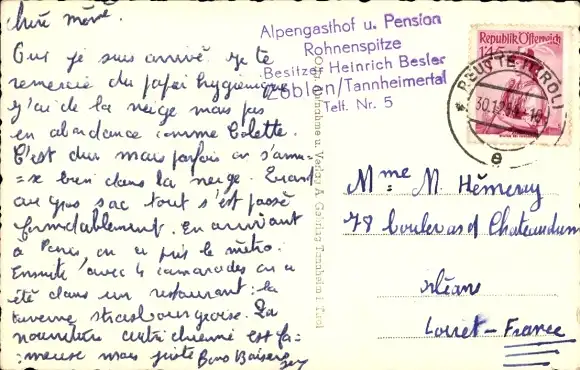 Chère mémé.
Oui je suis arrivé. Je te
remercie du papier hygiénique
J'ai de la neige mais pas
en abondance comme Colette.
C'est dur mais parfois on s'amu-
=se bien dans la neige. Quant
au gros sac tout s'est passé
formidablement. En arrivant
à Paris, on a pris le métro.
Ensuite avec 4 camarades on a
été dans un restaurant : la
taverne strasbourgeoise. La
nourriture autrichienne est fa-
=meuse mais juste Bons Baisers
Alpengasthof u. Pension
Rohnenspitze
Besitzer Heinrich Besler
Zöblen/Tannheimertal
Telf. Nr. 5
Republik Österreich
1.45
REUTTE (TIROL)
30.12.
e
Mme M. Hémeray
78 boulevard Chateaudun
Orléans
Loiret - France